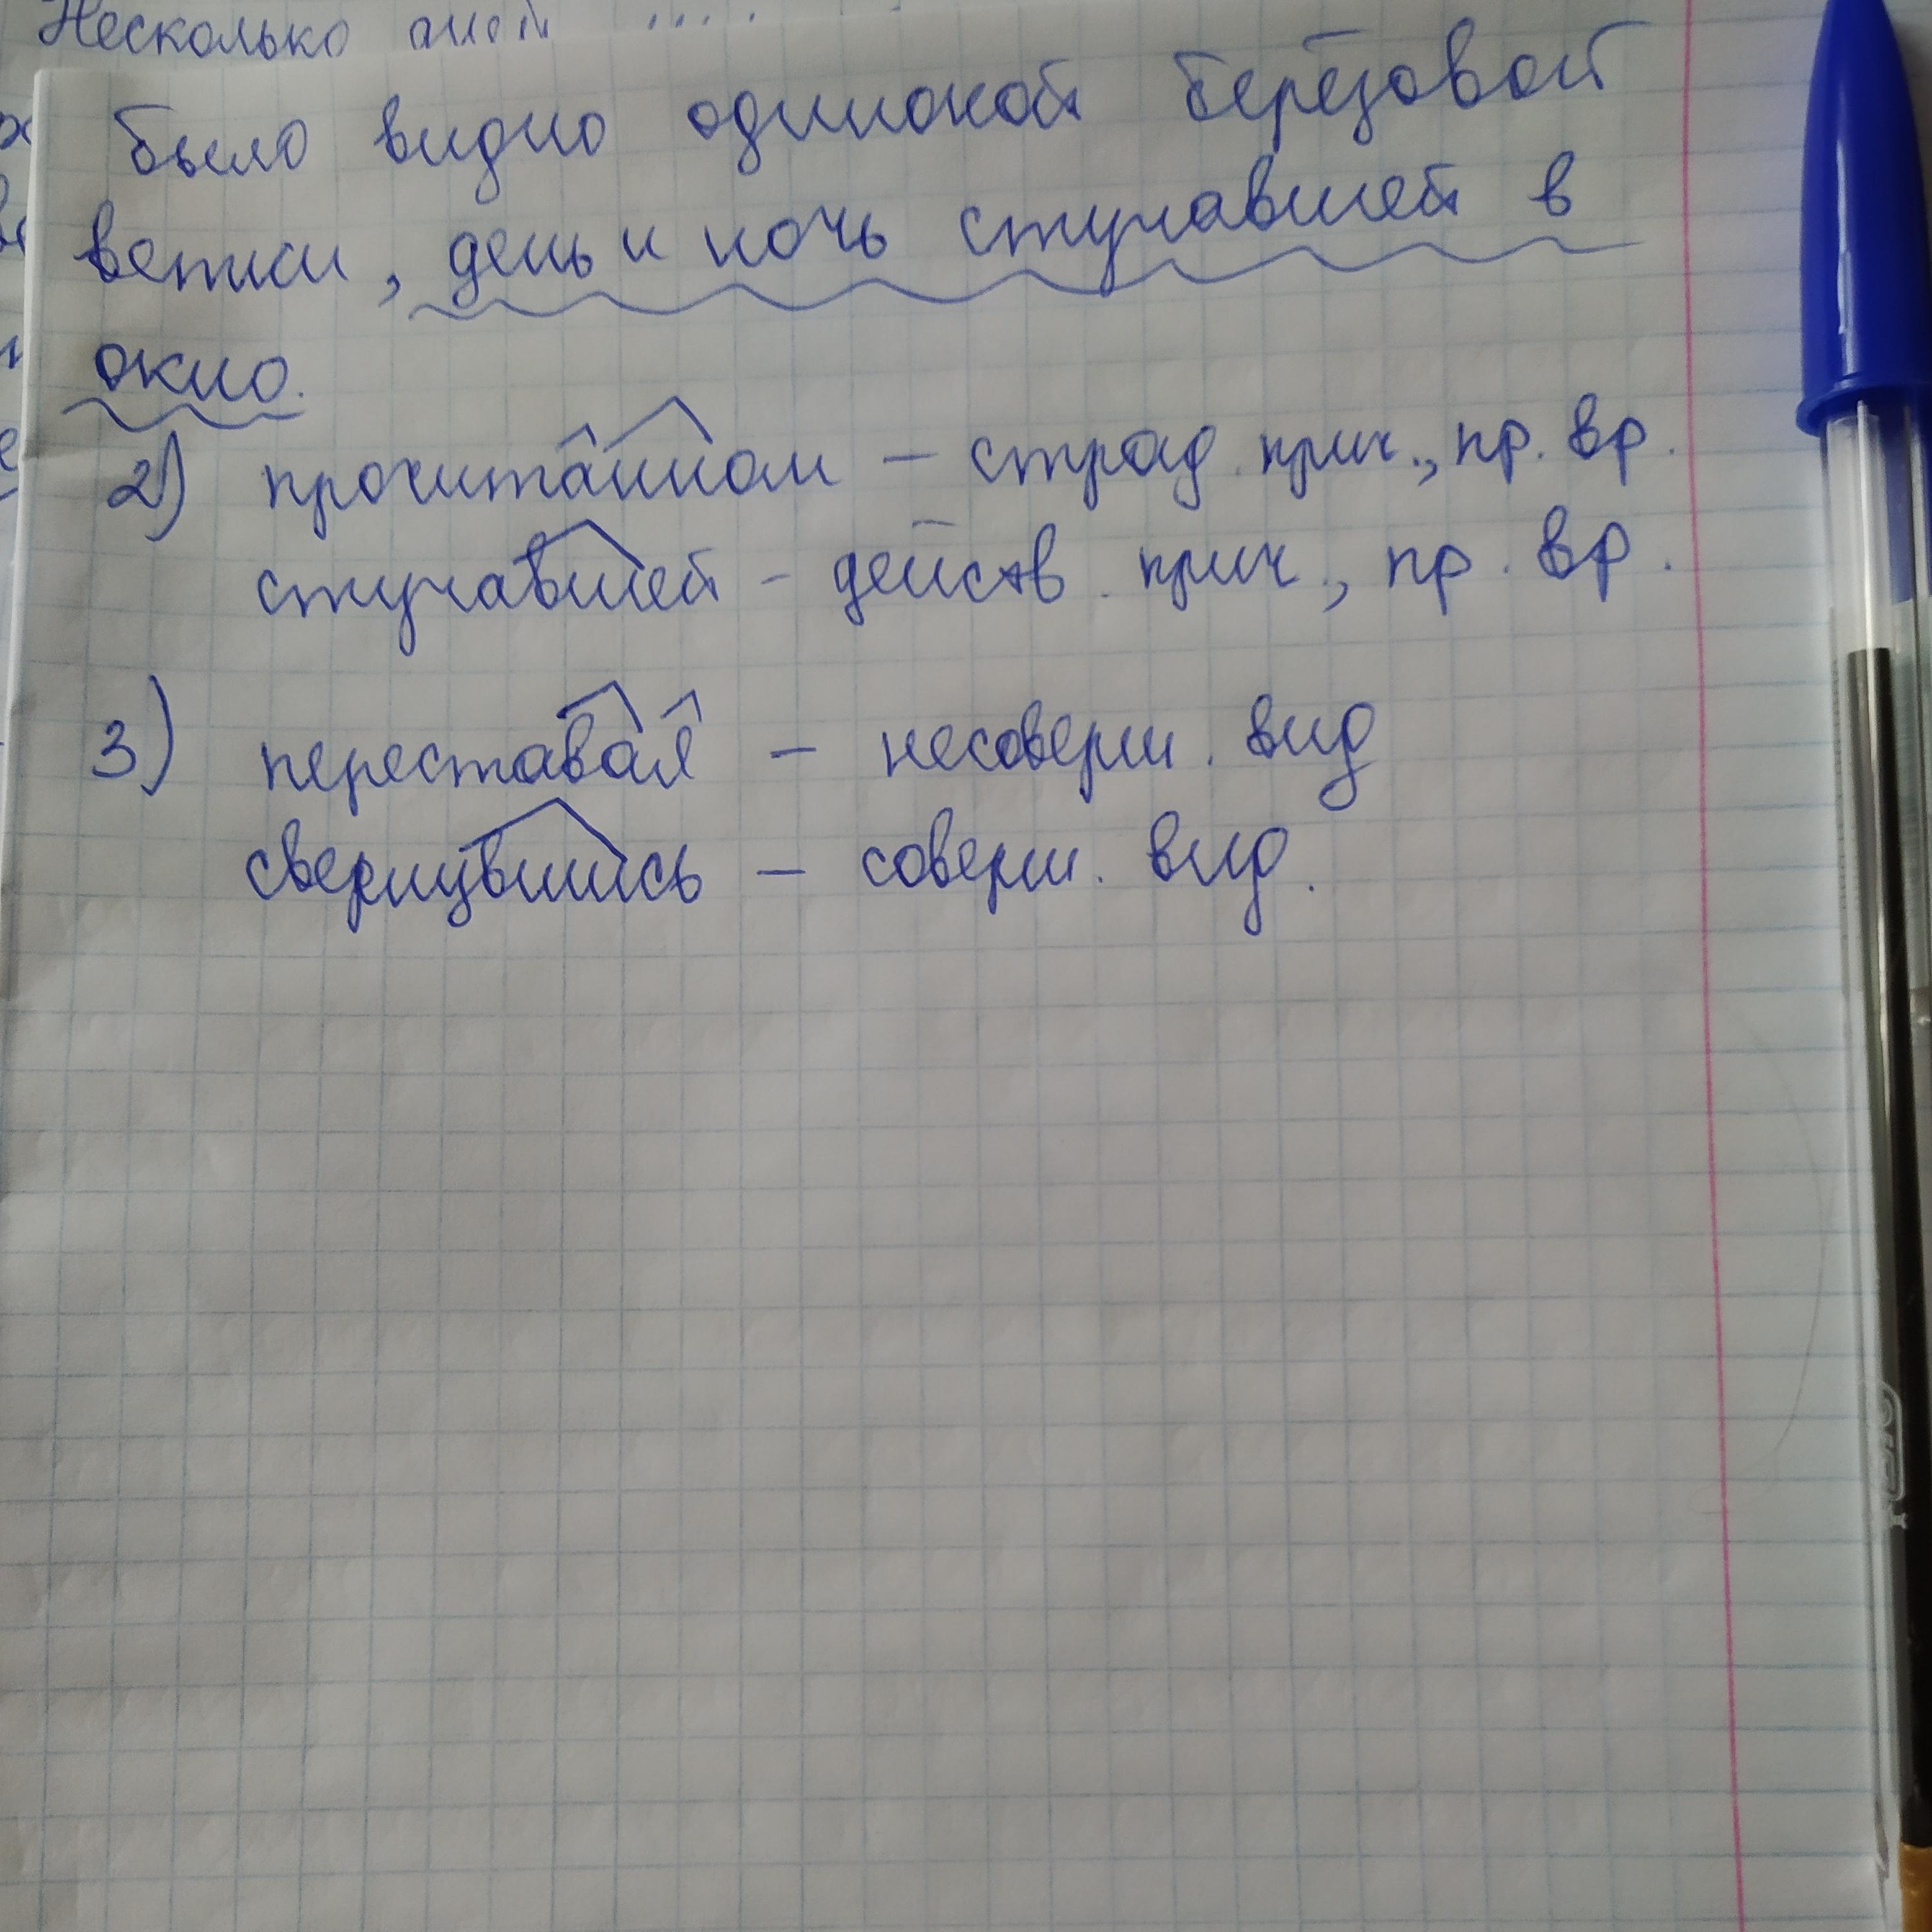 Несколько
было видно одинокой берёзовой
ветки, день и ночь стучавшей в
окно.
2) прочитанном – страд. прич., пр. вр.
стучавшей – действ. прич., пр. вр.
3) переставая – несоверш. вид
свернувшись – соверш. вид.